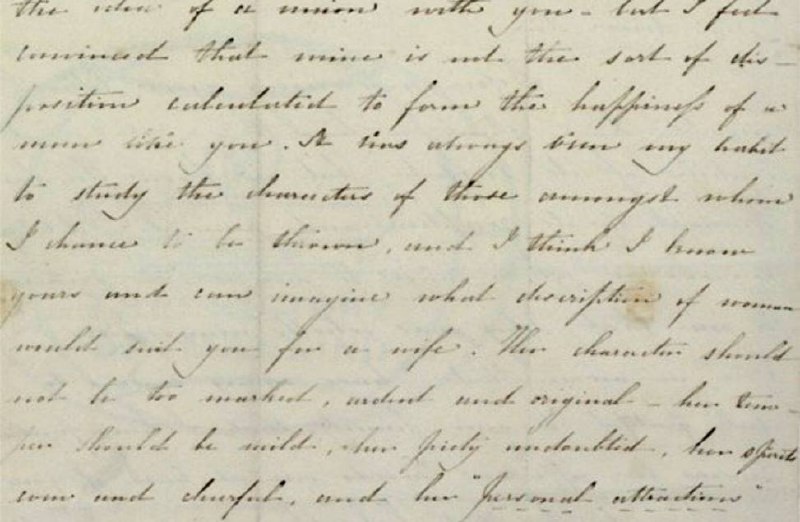 the idea of a union with you - but I feel
convinced that mine is not the sort of dis-
position calculated to form the happiness of a
man like you. It has always been my habit
to study the characters of those amongst whom
I chance to be thrown, and I think I know
yours and can imagine what description of woman
would suit you for a wife. Her character should
not be too marked, ardent and original - her tem-
per should be mild, her piety undoubted, her spirits
even and cheerful, and her "personal attraction"